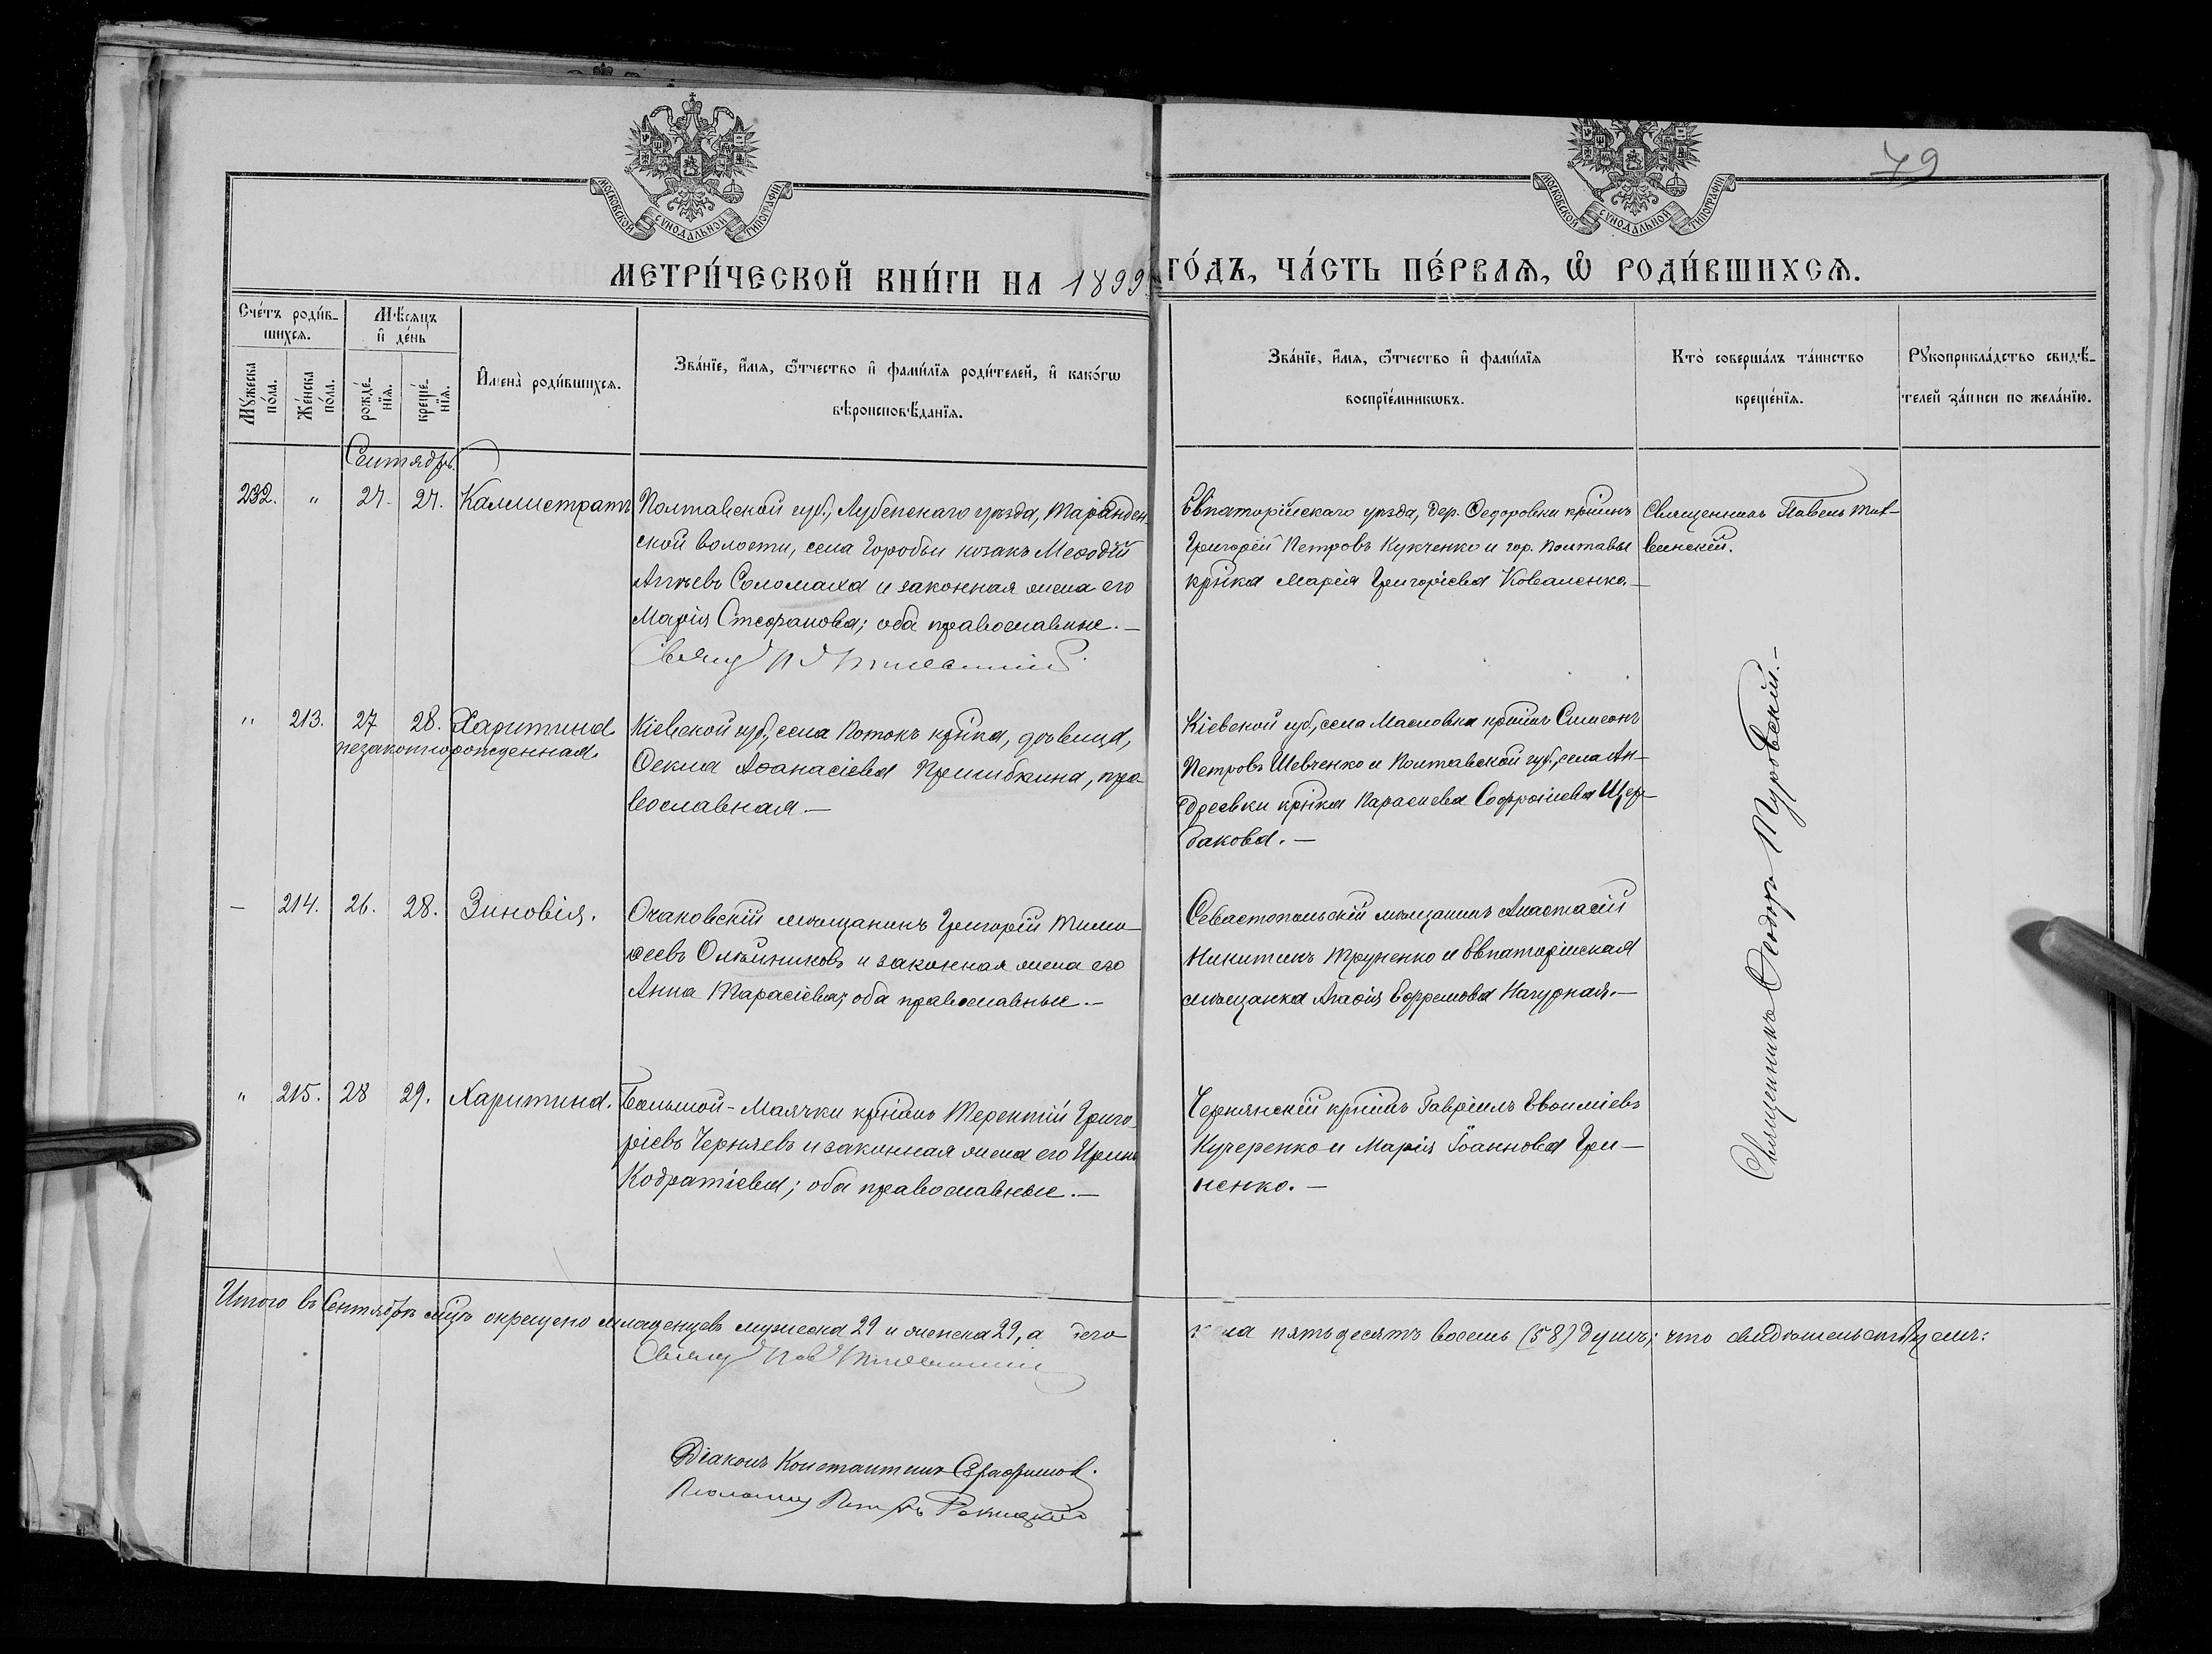 МОСКОВСКОЙ СѴНОДАЛЬНОЙ ТИПОГРАФІИ
МОСКОВСКОЙ СѴНОДАЛЬНОЙ ТИПОГРАФІИ
79
МЕТРИ́ЧЕСКОЙ КНИ́ГИ НА 1899 ГО́ДЪ, ЧА́СТЬ ПЕ́РВАѦ, Ѡ҆ РОДИ́ВШИХСѦ.
Сче́тъ роди́в-
шихсѧ.
Мѣ́сѧцъ
и҆ де́нь
Мꙋ́жеска
по́ла.
Же́нска
по́ла.
рожде́-
нїѧ.
креще́-
нїѧ.
И҆мена̀ роди́вшихсѧ.
Зва́нїе, и҆́мѧ, ѻ҆́тчество и҆ фами́лїѧ роди́телей, и҆ како́гѡ
вѣроисповѣ́данїѧ.
Зва́нїе, и҆́мѧ, ѻ҆́тчество и҆ фами́лїѧ
воспрїе́мникѡвъ.
Кто̀ соверша́лъ та́инство
креще́нїѧ.
Рꙋкоприкла́дство свидѣ́-
телей за́писи по жела́нїю.
Сентябрь.
232. " 27. 27. Каллистратъ
Полтавской губ., Лубенскаго уѣзда, Таранден-
ской волости, села Горобьи козакъ Меѳодій
Соломаха и законная жена его
Марія Стефанова; оба православные.—
Свящ
Евпаторійскаго уѣзда, дер. Ѳедоровки крнинъ
Григорій Петровъ Кукченко и гор. Полтавы
крнка Марія Григоріева Коваленко.—
Священникъ Павелъ Тих-
винскій.
" 213. 27 28. Харитина
незаконнорожденная
Кіевской губ., села Потокъ крнка, дѣвица,
Ѳекла Аѳанасіева Пришибкина, пра-
вославная.—
Кіевской губ., села Масловка крнинъ Симеонъ
Петровъ Шевченко и Полтавской губ., села Ан-
дреевки крнка Параскева Софроніева Щер-
бакова.—
— 214. 26. 28. Зиновія.
Очаковскій мѣщанинъ Григорій Тимо-
ѳеевъ Олейниковъ и законная жена его
Анна Тарасіева; оба православные.—
Севастопольскій мѣщанинъ Анастасій
Никитинъ Труненко и Евпаторійская
мѣщанка Агаѳія Ефремова Нагурная.—
" 215. 28 29. Харитина.
Большой-Маячки крнинъ Терентій Григо-
ріевъ Черняевъ и законная жена его Ирина
Кодратіева; оба православные.—
Чернянскій крнинъ Гавріилъ Евѳиміевъ
Кучеренко и Марія Іоаннова Гри-
ненко.—
Священникъ Ѳеодоръ Туровскій.—
Итого въ Сентябрѣ мцѣ окрещено младенцевъ мужеска 29 и женска 29, а пятьдесятъ восемь (58) душъ; что свидѣтельствуемъ:
Свящ
Діаконъ Константинъ Серафимов.
Псаломщ Петръ Ракицкій